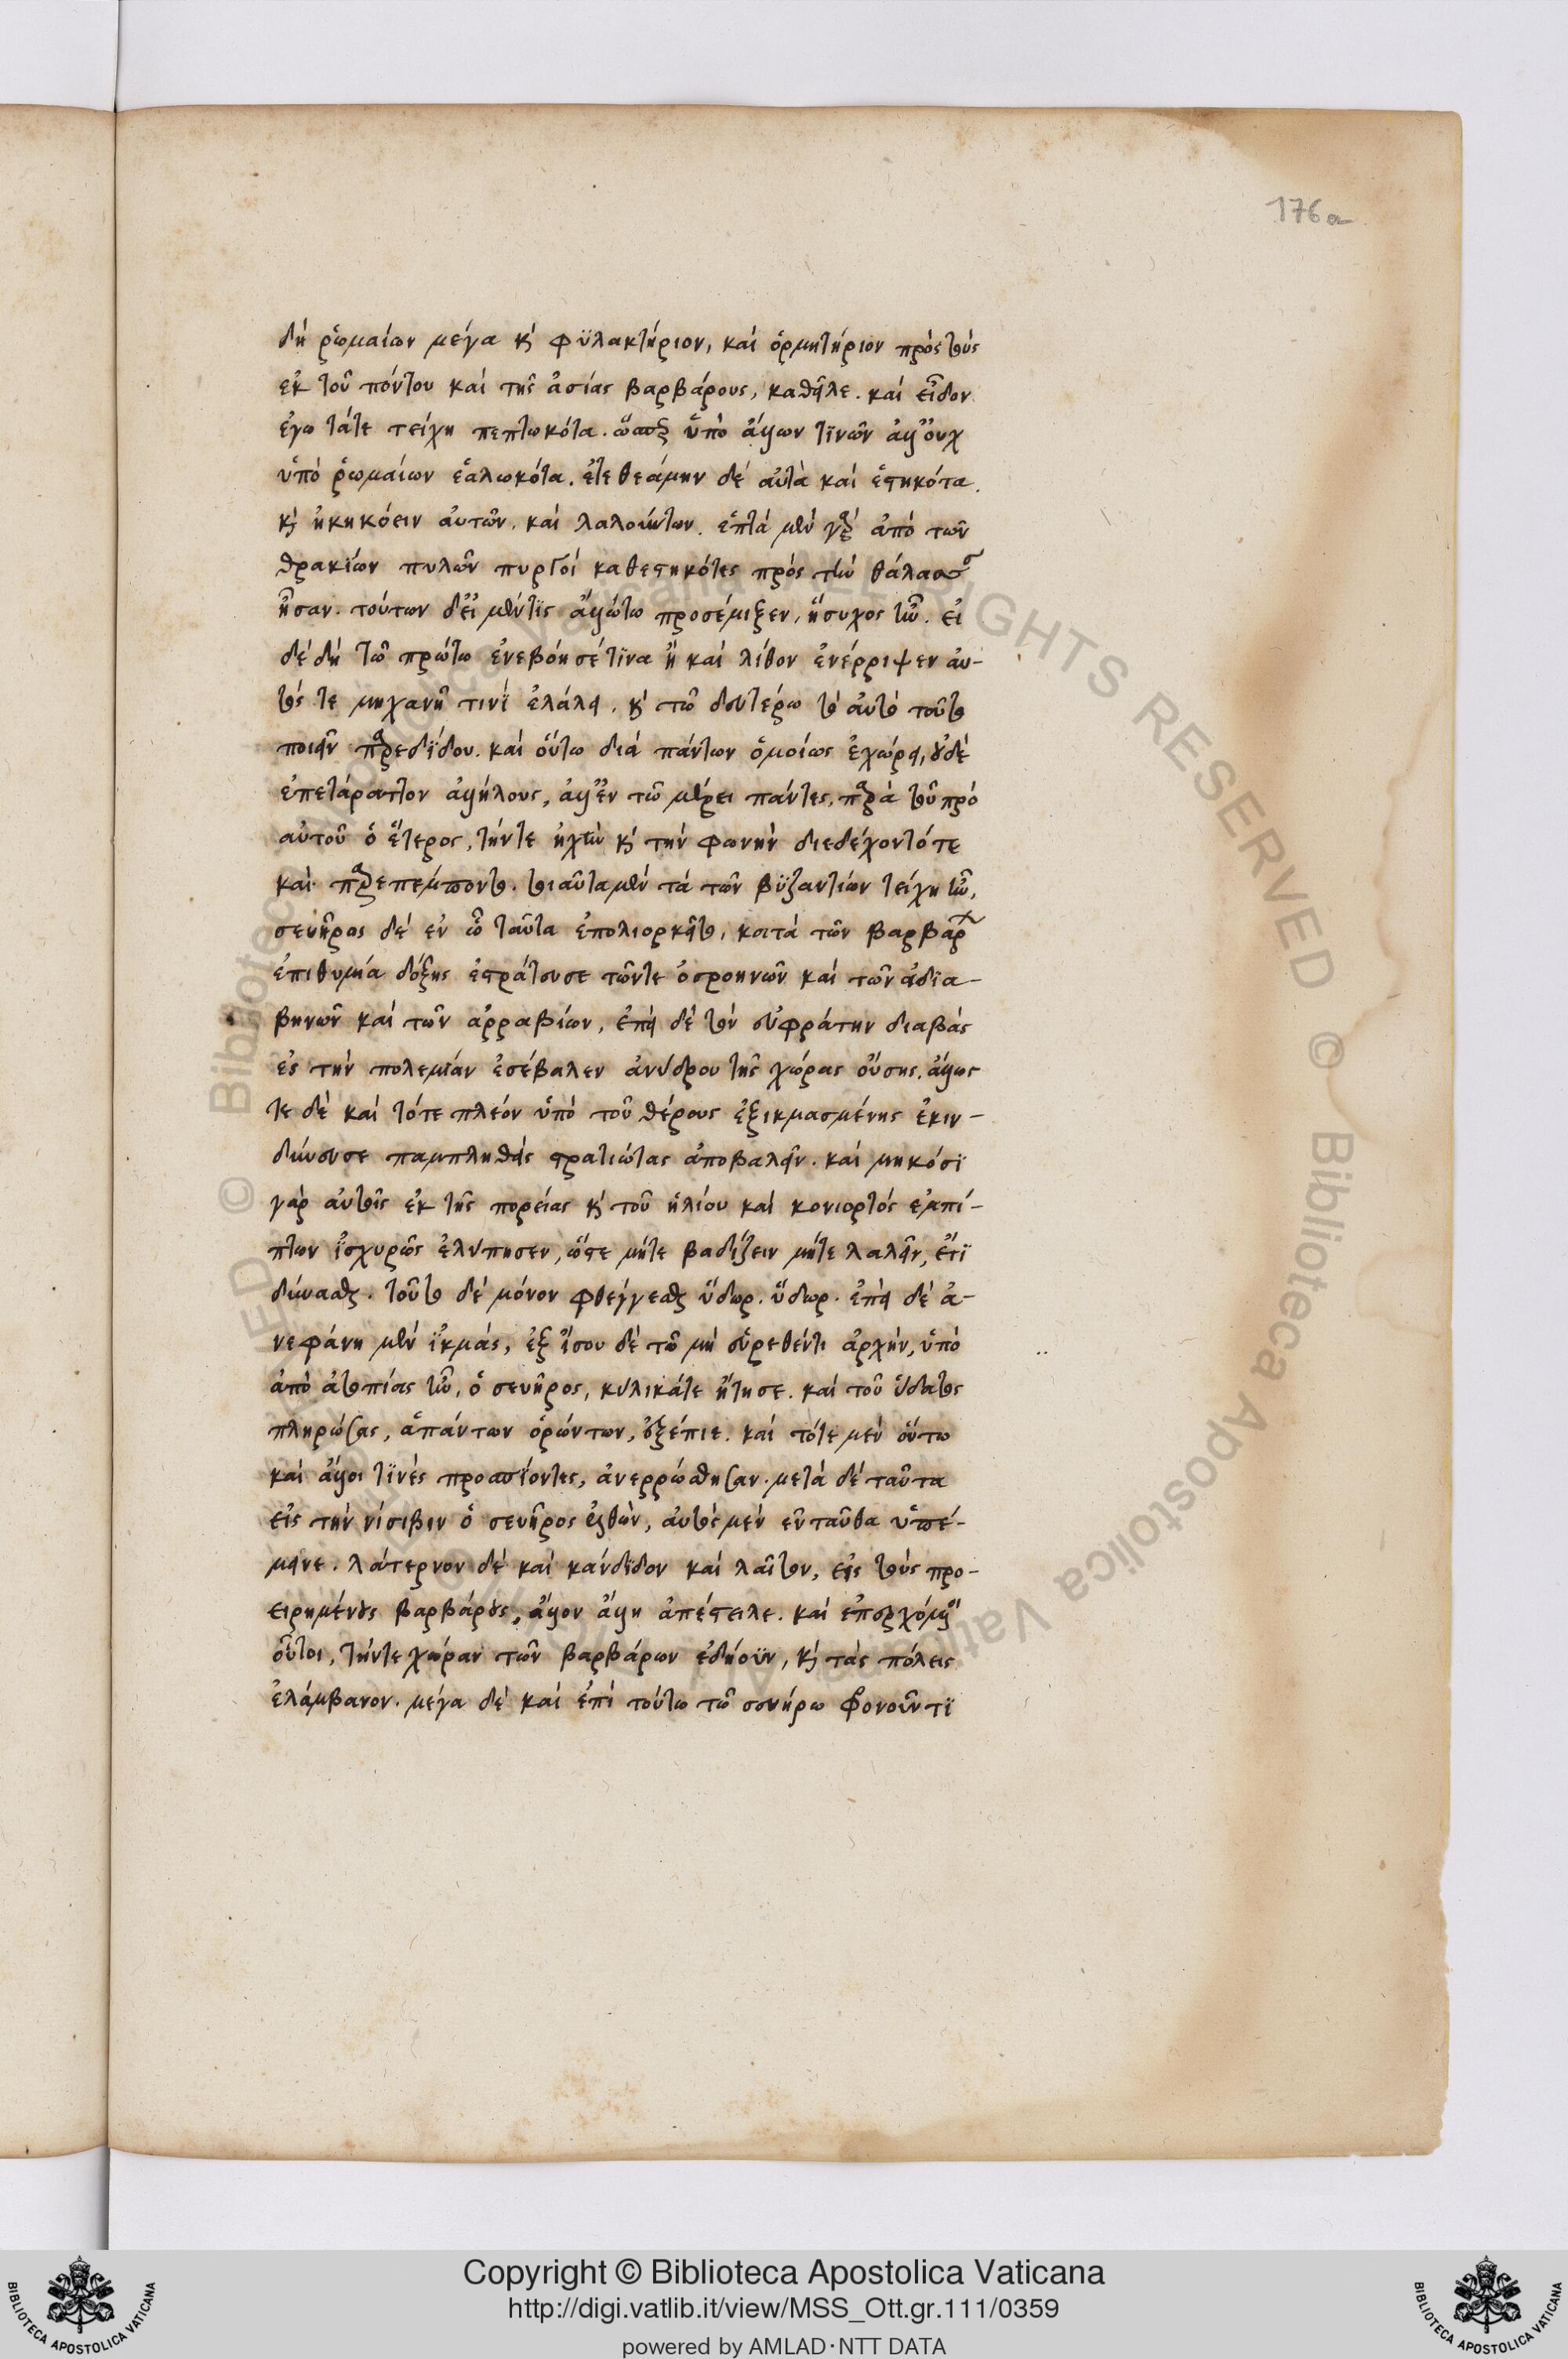 176a
δὴ ῥωμαίων μέγα κ φϋλακτήριον, καὶ ὁρμητήριον πρὸς τοὺς
ἐκ τοῦ πόντου καὶ τῆς ἀσίας βαρβάρους, καθεῖλε. καὶ εἶδον
ἐγὼ τάτε τείχη πεπτωκότα. ὥσπερ ὑπὸ ἄλλων τϊνῶν ἀλλ' οὐχ
ὑπὸ ῥωμαίων ἑαλωκότα. ἐτεθεάμην δὲ αὐτὰ καὶ ἑστηκότα.
κ ἠκηκόειν αὐτῶν. καὶ λαλούντων. ἑπτὰ μὲν γὰρ ἀπὸ τῶν
θρακίων πυλῶν πυργοὶ καθεστηκότες πρὸς τὴν θάλασσ
ἦσαν. τούτων δ' εἰ μέν τϊς ἄλλω τω προσέμιξεν, ἥσυχος ἦν. εἰ
δὲ δὴ τῶ πρώτω ἐνεβόησέ τϊνα ἢ καὶ λίθον ἐνέρριψεν αὐ-
τός τε μηχανῆ τινὶ ἐλάλει. κ τῶ δευτέρω τὸ αὐτὸ τοῦτο
ποιεῖν παρεδίδου. καὶ οὕτω διὰ πάντων ὁμοίως ἐχώρει, οὐδὲ
ἐπετάραττον ἀλλήλους, ἀλλ' ἐν τῶ μέρει πάντες, παρὰ τοῦ πρὸ
αὐτοῦ ὁ ἕτερος, τήντε ἠχὼ κ τὴν φωνὴν διεδέχοντότε
καὶ παρεπέμποντο. τοιαῦτα μὲν τὰ τῶν βϋζαντίων τείχη ἦν.
σευῆρος δὲ ἐν ὧ ταῦτα ἐπολιορκεῖτο, κατὰ τῶν βαρβάρ
ἐπιθυμία δόξης ἐστράτευσε τῶντε ὀσροηνῶν καὶ τῶν ἀδϊα-
βηνῶν καὶ τῶν ἀρραβίων. ἐπεὶ δὲ τὸν εὐφράτην διαβὰς
ἐς τὴν πολεμίαν ἐσέβαλεν ἀνύδρου τῆς χώρας οὔσης. ἄλλως
τε δὲ καὶ τότε πλέον ὑπὸ τοῦ θέρους ἐξικμασμένης ἐκιν-
δύνευσε παμπληθεῖς στρατιώτας ἀποβαλεῖν. καὶ μηκόσϊ
γὰρ αὐτοῖς ἐκ τῆς πορείας κ τοῦ ἡλίου καὶ κονιορτὸς ἐμπί-
πτων ἰσχυρῶς ἐλύπησεν, ὥστε μήτε βαδίζειν μήτε λαλεῖν, ἔτϊ
δύνασθαι. τοῦτο δὲ μόνον φθέγγεσθαι ὕδωρ. ὕδωρ. ἐπεὶ δὲ ἀ-
νεφάνη μὲν ἰκμὰς, ἐξ ἴσου δὲ τῶ μὴ εὑρεθέντι ἀρχὴν, ὑπὸ
ἀπὸ ἀτοπίας ἦν, ὁ σευῆρος, κύλικάτε ἤτησε. καὶ τοῦ ὕδατος
πληρώσας, ἁπάντων ὁρώντων, ἐξέπιε. καὶ τότε μὲν οὕτω
καὶ ἄλλοι τϊνὲς προσπϊόντες, ἀνερρώσθησαν. μετὰ δὲ ταῦτα
εἰς τὴν νίσιβιν ὁ σευῆρος ἐλθὼν, αὐτὸς μὲν ἐνταῦθα ὑπέ-
μεινε. λάτερνον δὲ καὶ κάνδϊδον καὶ λαῖτον, εἰς τοὺς προ-
ειρημένους βαρβάρους, ἄλλον ἄλλη ἀπέστειλε. καὶ ἐπερχόμενοι
οὗτοι, τήντε χώραν τῶν βαρβάρων ἐδήουν, κ τὰς πόλεις
ἐλάμβανον. μέγα δὲ καὶ ἐπὶ τούτω τῶ σευήρω φρονοῦντϊ
Copyright © Biblioteca Apostolica Vaticana
http://digi.vatlib.it/view/MSS_Ott.gr.111/0359
powered by AMLAD·NTT DATA